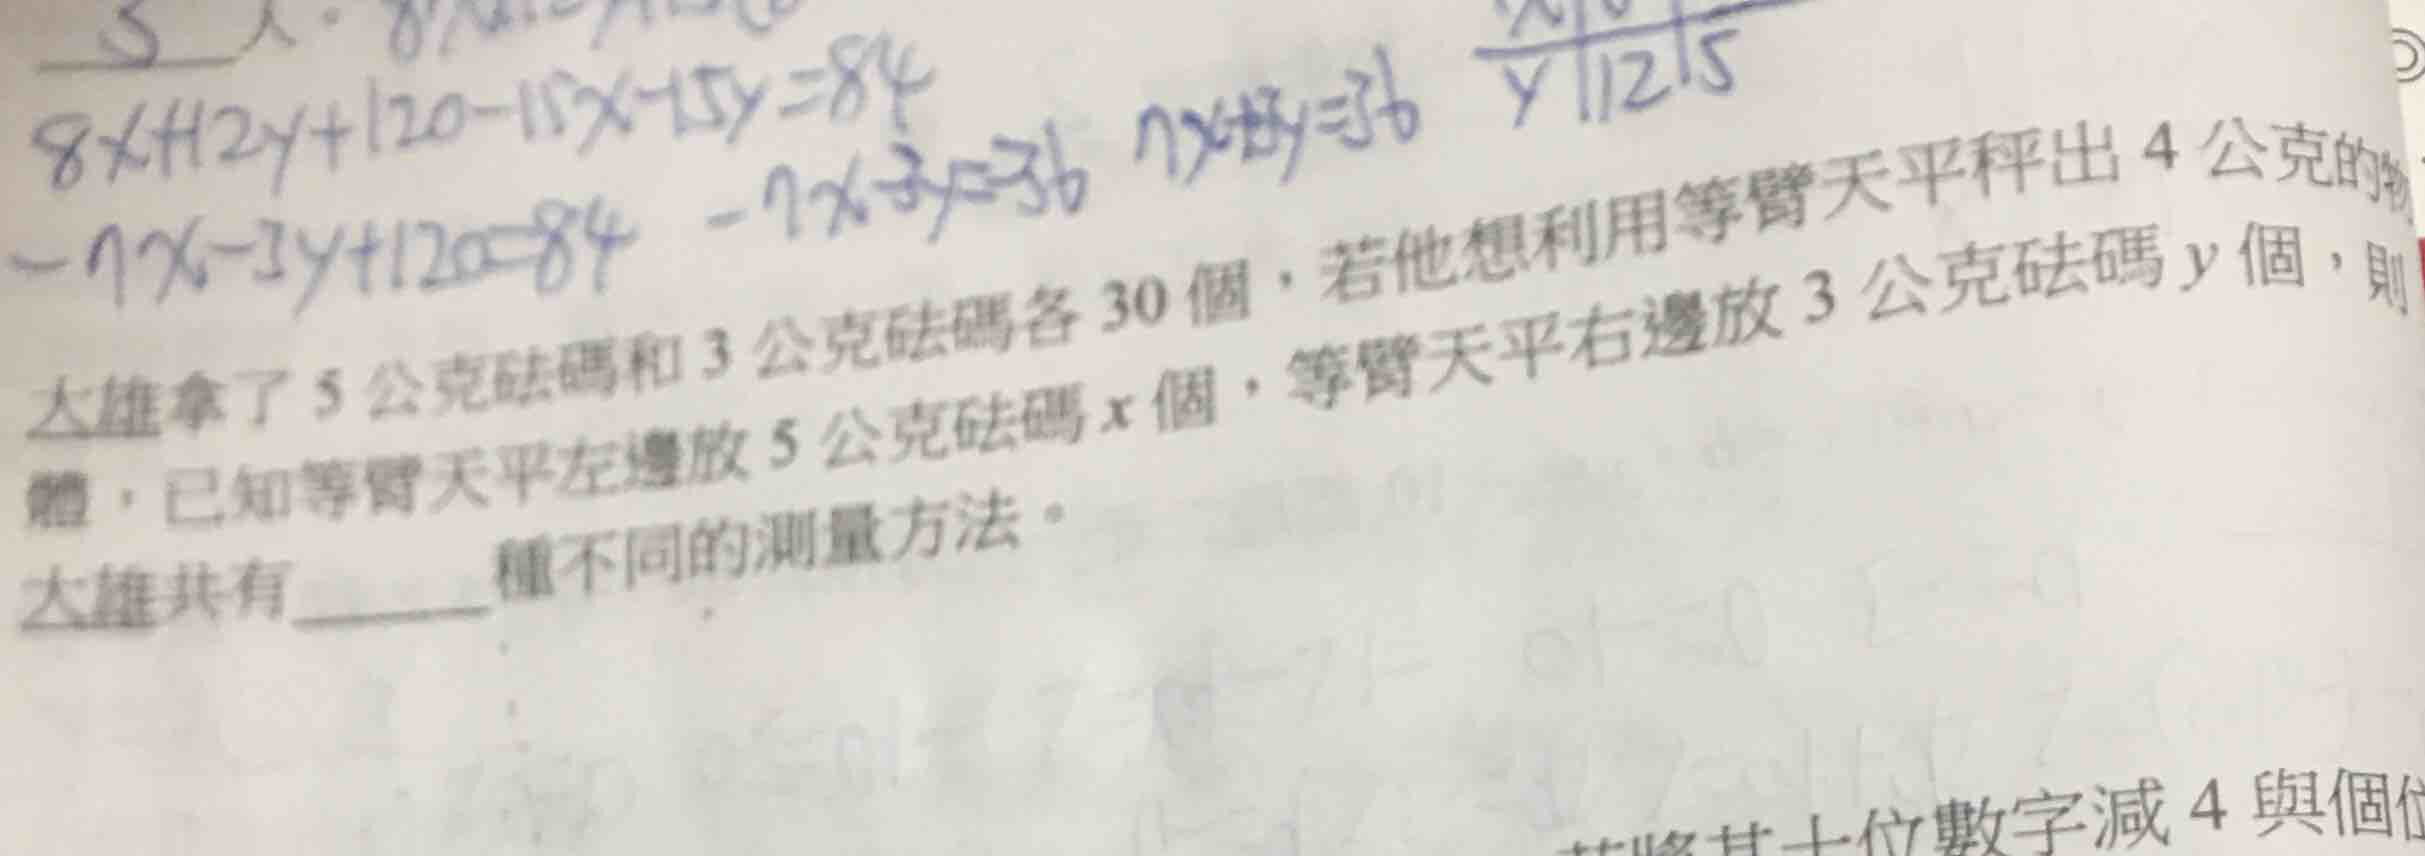 5 人。
8x+12y+120-15x-15y=84
-7x-3y+120=84 -7x-3y=-36 7x+3y=36
y 12 5
大雄拿了 5 公克砝碼和 3 公克砝碼各 30 個，若他想利用等臂天平秤出 4 公克的物
體，已知等臂天平左邊放 5 公克砝碼 x 個，等臂天平右邊放 3 公克砝碼 y 個，則
大雄共有______種不同的測量方法。
若將其十位數字減 4 與個位